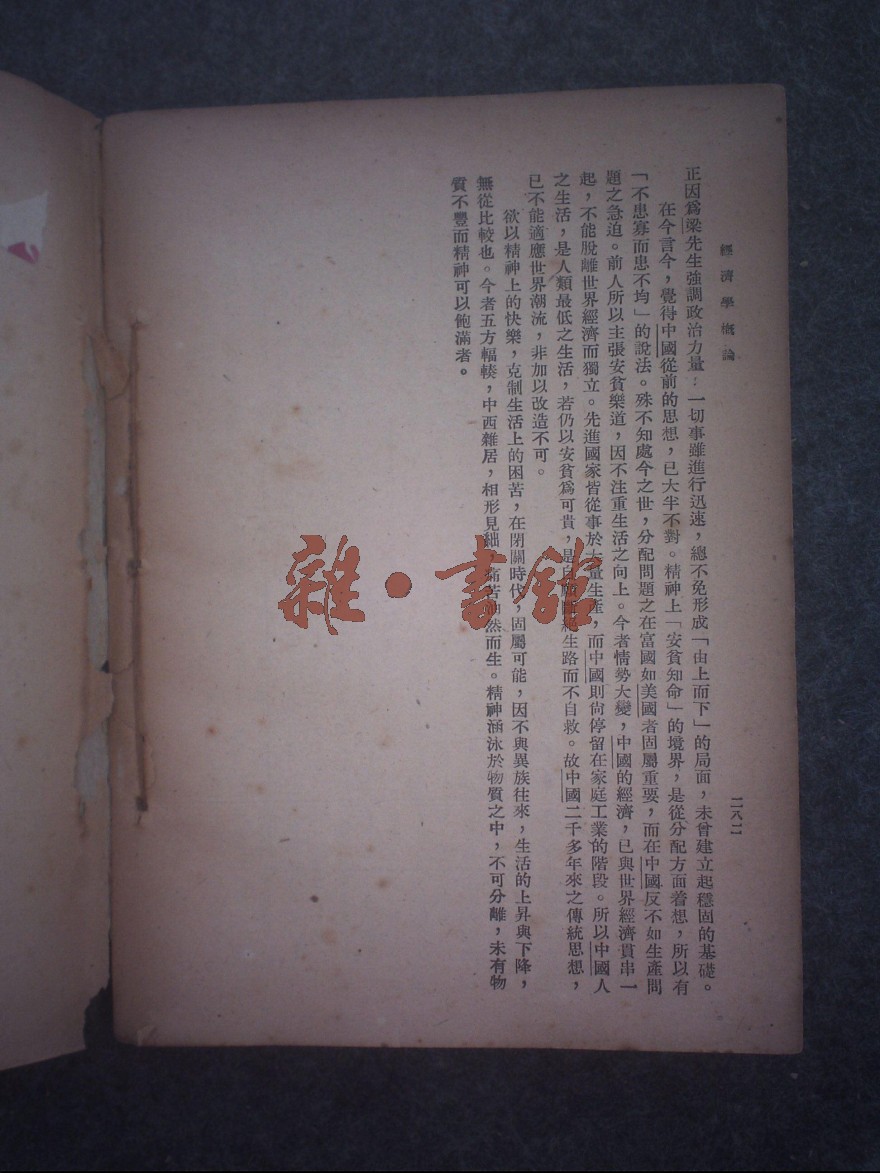 經濟學概論
二八二
正因爲梁先生強調政治力量,一切事雖進行迅速,總不免形成「由上而下」的局面,未曾建立起穩固的基礎。
在今言今,覺得中國從前的思想,已大半不對。精神上「安貧知命」的境界,是從分配方面着想,所以有
「不患寡而患不均」的說法。殊不知處今之世,分配問題之在富國如美國者固屬重要,而在中國反不如生產問
題之急迫。前人所以主張安貧樂道,因不注重生活之向上。今者情勢大變,中國的經濟,已與世界經濟貫串一
起,不能脫離世界經濟而獨立。先進國家皆從事於大量生產,而中國則尙停留在家庭工業的階段。所以中國人
之生活,是人類最低之生活,若仍以安貧爲可貴,是自斷絕生路而不自救。故中國二千多年來之傳統思想,
已不能適應世界潮流,非加以改造不可。
欲以精神上的快樂,克制生活上的困苦,在閉關時代,固屬可能,因不與異族往來,生活的上昇與下降,
無從比較也。今者五方輻輳,中西雜居,相形見絀,痛苦油然而生。精神涵泳於物質之中,不可分離,未有物
質不豐而精神可以飽滿者。
雜·書館